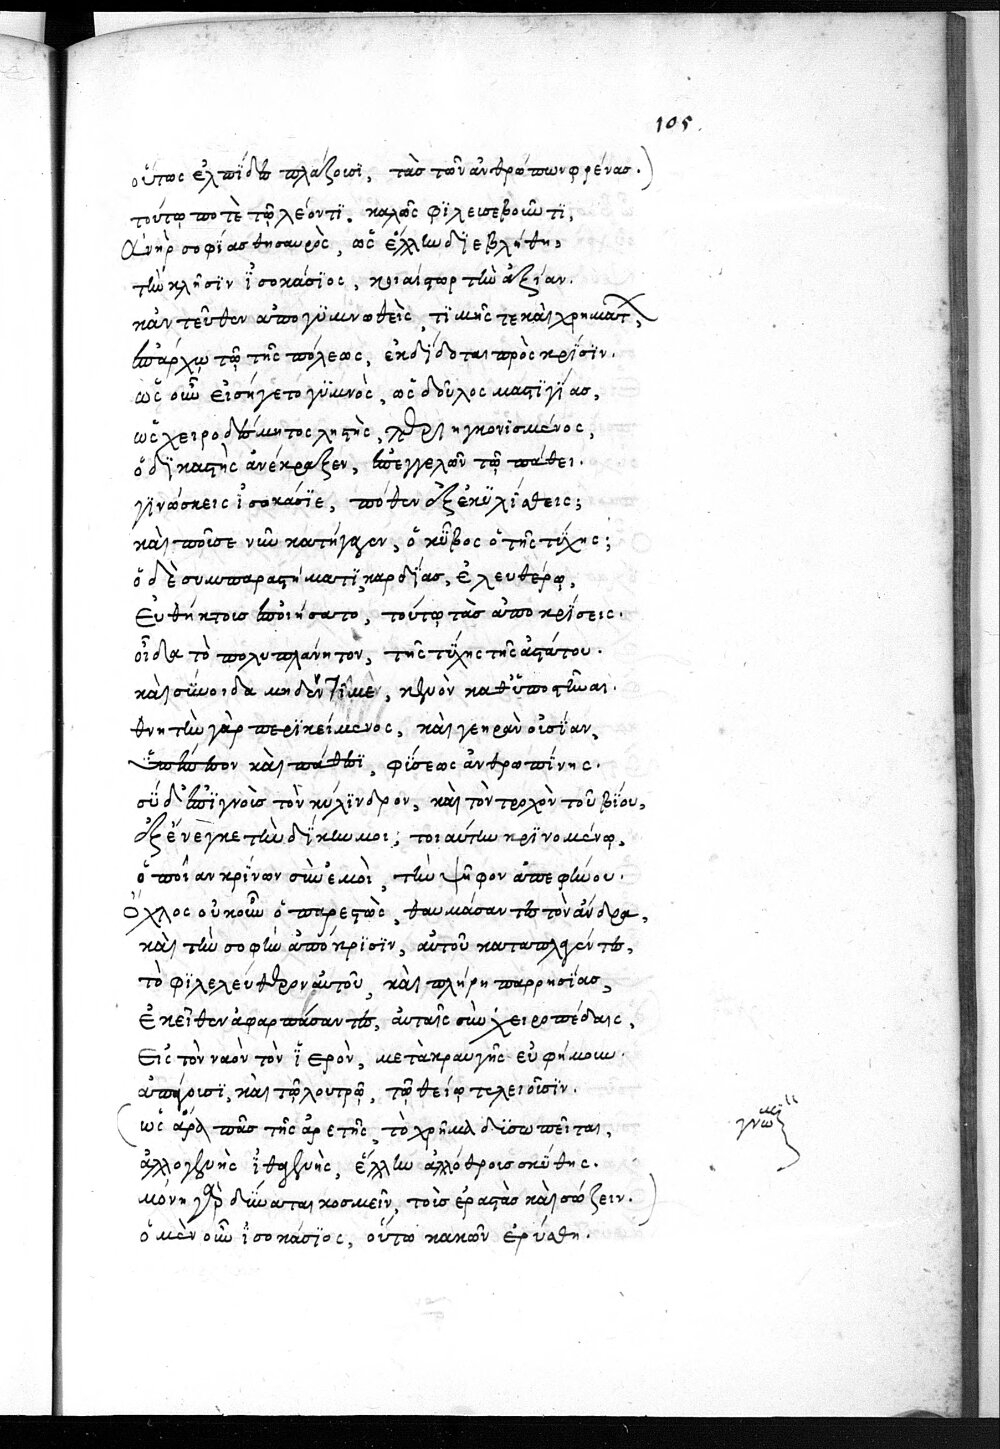 105
οὕτως ἐλπίδες πλάζουσι, τὰς τῶν ἀνθρώπων φρένας.
τούτῳ ποτὲ τῷ λέοντι. καλῶς φιλευσεβοῦντι,
ἀνὴρ σοφίας θησαυρὸς, ὡς ἕλλην διεβλήθη,
τὴν κλῆσιν ἰσοκάσιος, κυαίστωρ τὴν ἀξίαν.
κἀντεῦθεν ἀπογυμνωθεὶς, τιμῆς τε καὶ χρημάτων,
ἐπάρχῳ τῷ τῆς πόλεως, ἐκδίδοται πρὸς κρίσιν.
ὡς οὖν εἰσήγετο γυμνὸς, ὡς δοῦλος μαστιγίας,
ὡς χειροδέσμητος ληστὴς, ἐξηγκονισμένος,
ὁ δικαστὴς ἀνέκραξεν, ἐπεγγελῶν τῷ πάθει.
γινώσκεις ἰσοκάσιε, πόθεν ἐξεκυλίσθεις;
καὶ ποῖ σε νῦν κατήγαγεν, ὁ κῦβος ὁ τῆς τύχης;
ὁ δὲ συμπαραστήματι, καρδίας, ἐλευθέρῳ,
εὐθήκτους ἐποιήσατο, τούτῳ τὰς ἀποκρίσεις.
οἶδα τὸ πολυπλάνητον, τῆς τύχης τῆς ἀστάτου.
καὶ σύνοιδα μηδέν τι με, καινὸν καθυποστῆναι.
θνητὴν γὰρ περικείμενος, καὶ γεηρὰν οὐσίαν,
ὑπέπεσον καὶ πάθεσι, φύσεως ἀνθρωπίνης.
σὺ δ' ἐπιγνοὺς τὸν κύλινδρον, καὶ τὸν τροχὸν τοῦ βίου,
ἐξένεγκε τὴν δίκην μοι, τοιαύτην κρινομένῳ,
ὁποίαν κρίνων σὺν ἐμοὶ, τὴν ψῆφον ἀπεφήνου.
Ὄχλος οὐκοῦν ὁ παρεστὼς, θαυμάσαντες τὸν ἄνδρα,
καὶ τὴν σοφὴν ἀπόκρισιν, αὐτοῦ καταπλαγέντες,
τὸ φιλελεύθερον αὐτοῦ, καὶ πλήρη παρρησίας,
ἐκεῖθεν ἀφαρπάσαντες, αὐταῖς σὺν χειροπέδαις,
εἰς τὸν ναὸν τὸν ἱερὸν, μετὰ κραυγῆς εὐφήμου.
ἀπάγουσι, καὶ τῷ λουτρῷ, τῷ θείῳ τελειοῦσιν.
ὡς ἄρα πᾶς τῆς ἀρετῆς, τὸ χρῆμα δυσωπεῖται,
γνώμη
ἀλλογενὴς ἰθαγενὴς, ἕλλην ἀλλόθρους σκύθης.
μόνη γὰρ δύναται κοσμεῖν, τοὺς ἐραστὰς καὶ σώζειν.
ὁ μὲν οὖν ἰσοκάσιος, οὕτω κακῶν ἐρύσθη.